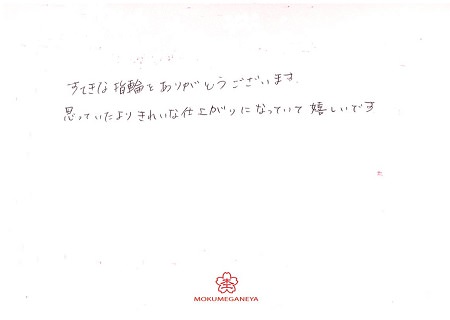 すてきな指輪をありがとうございます.
思っていたよりきれいな仕上がりになっていて嬉しいです
MOKUMEGANEYA